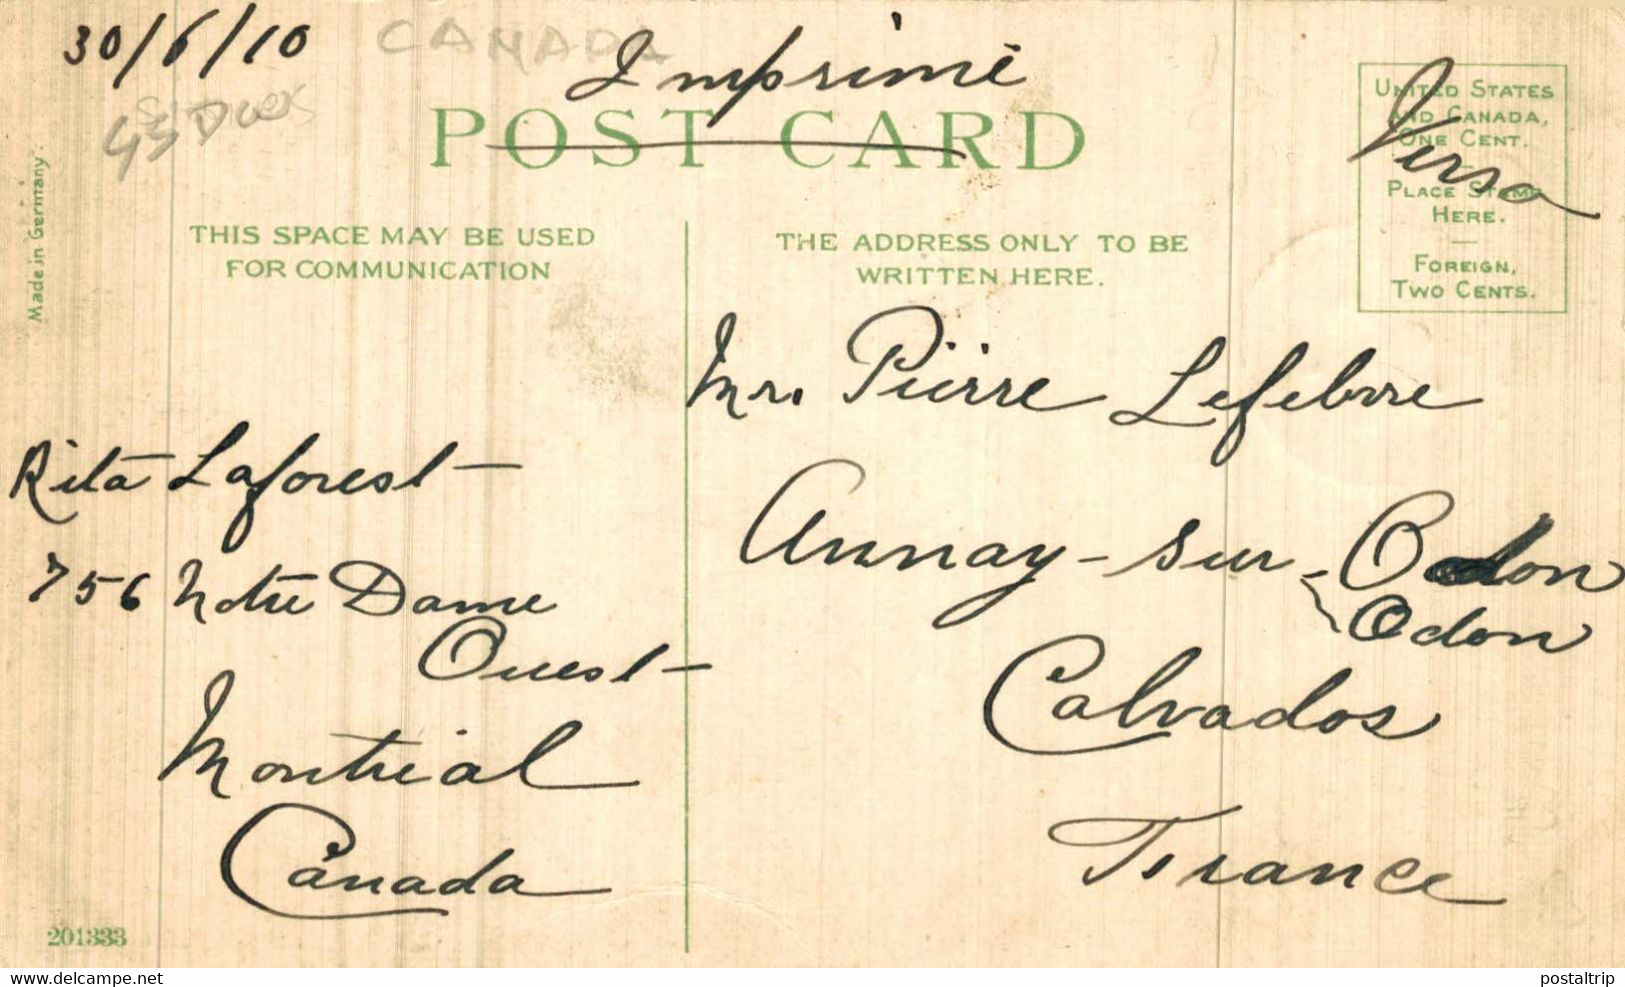 30/6/10
CANADA
Imprimé
POST CARD
Verso
UNITED STATES
AND CANADA,
ONE CENT.
PLACE STAMP
HERE.
FOREIGN,
TWO CENTS.
Made in Germany.
THIS SPACE MAY BE USED
FOR COMMUNICATION
THE ADDRESS ONLY TO BE
WRITTEN HERE.
Mr. Pierre Lefebvre
Aunay-sur-Odon
Odon
Calvados
France
Rita Laforest
756 Notre Dame
Ouest
Montréal
Canada
201333
www.delcampe.net
postaltrip